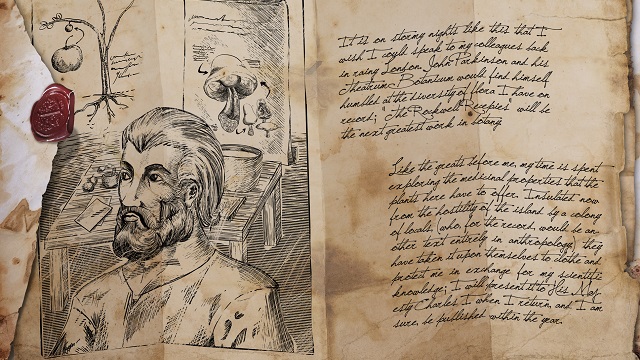 It is on stormy nights like this that I
wish I could speak to my colleagues back
in rainy London. John Parkinson and his
Theatrum Botanicum would find himself
humbled at the diversity of flora I have on
record; "The Rockwell Recipies" will be
the next greatest work in botany.
Like the greats before me, my time is spent
exploring the medicinal properties that the
plants here have to offer. Insulated now
from the hostility of the island by a colony
of locals (who, for the record, would be an-
other text entirely in anthropology) they
have taken it upon themselves to clothe and
protect me in exchange for my scientific
knowledge; I will present it to His Maj-
esty Charles I when I return, and I am
sure, be published within the year.